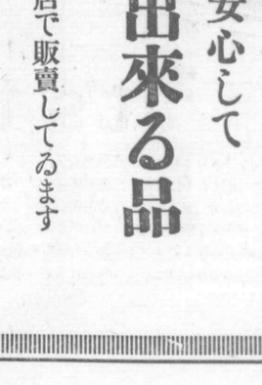 安心して
出來る品
店で販賣してゐます